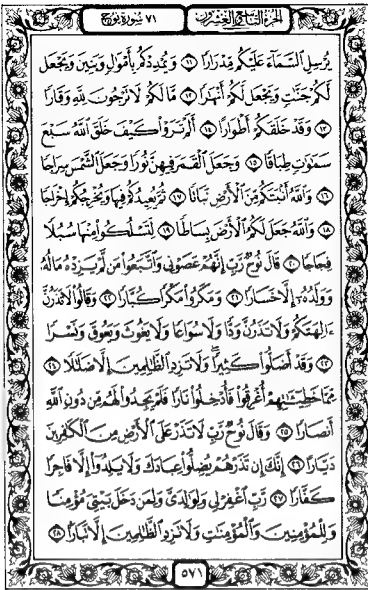 الجزء التاسع والعشرون ٧١ سورة نوح
يُرْسِلِ السَّمَآءَ عَلَيْكُم مِّدْرَارًا ١١ وَيُمْدِدْكُم بِأَمْوَٰلٍ وَبَنِينَ وَيَجْعَل
لَّكُمْ جَنَّٰتٍ وَيَجْعَل لَّكُمْ أَنْهَٰرًا ١٢ مَّا لَكُمْ لَا تَرْجُونَ لِلَّهِ وَقَارًا
١٣ وَقَدْ خَلَقَكُمْ أَطْوَارًا ١٤ أَلَمْ تَرَوْا۟ كَيْفَ خَلَقَ ٱللَّهُ سَبْعَ
سَمَٰوَٰتٍ طِبَاقًا ١٥ وَجَعَلَ ٱلْقَمَرَ فِيهِنَّ نُورًا وَجَعَلَ ٱلشَّمْسَ سِرَاجًا
١٦ وَٱللَّهُ أَنۢبَتَكُم مِّنَ ٱلْأَرْضِ نَبَاتًا ١٧ ثُمَّ يُعِيدُكُمْ فِيهَا وَيُخْرِجُكُمْ إِخْرَاجًا
١٨ وَٱللَّهُ جَعَلَ لَكُمُ ٱلْأَرْضَ بِسَاطًا ١٩ لِّتَسْلُكُوا۟ مِنْهَا سُبُلًا
فِجَاجًا ٢٠ قَالَ نُوحٌ رَّبِّ إِنَّهُمْ عَصَوْنِى وَٱتَّبَعُوا۟ مَن لَّمْ يَزِدْهُ مَالُهُۥ
وَوَلَدُهُۥٓ إِلَّا خَسَارًا ٢١ وَمَكَرُوا۟ مَكْرًا كُبَّارًا ٢٢ وَقَالُوا۟ لَا تَذَرُنَّ
ءَالِهَتَكُمْ وَلَا تَذَرُنَّ وَدًّا وَلَا سُوَاعًا وَلَا يَغُوثَ وَيَعُوقَ وَنَسْرًا
٢٣ وَقَدْ أَضَلُّوا۟ كَثِيرًا وَلَا تَزِدِ ٱلظَّٰلِمِينَ إِلَّا ضَلَٰلًا ٢٤
مِّمَّا خَطِيٓـَٰٔتِهِمْ أُغْرِقُوا۟ فَأُدْخِلُوا۟ نَارًا فَلَمْ يَجِدُوا۟ لَهُم مِّن دُونِ ٱللَّهِ
أَنصَارًا ٢٥ وَقَالَ نُوحٌ رَّبِّ لَا تَذَرْ عَلَى ٱلْأَرْضِ مِنَ ٱلْكَٰفِرِينَ
دَيَّارًا ٢٦ إِنَّكَ إِن تَذَرْهُمْ يُضِلُّوا۟ عِبَادَكَ وَلَا يَلِدُوٓا۟ إِلَّا فَاجِرًا
كَفَّارًا ٢٧ رَّبِّ ٱغْفِرْ لِى وَلِوَٰلِدَىَّ وَلِمَن دَخَلَ بَيْتِىَ مُؤْمِنًا
وَلِلْمُؤْمِنِينَ وَٱلْمُؤْمِنَٰتِ وَلَا تَزِدِ ٱلظَّٰلِمِينَ إِلَّا تَبَارًۢا ٢٨
٥٧١